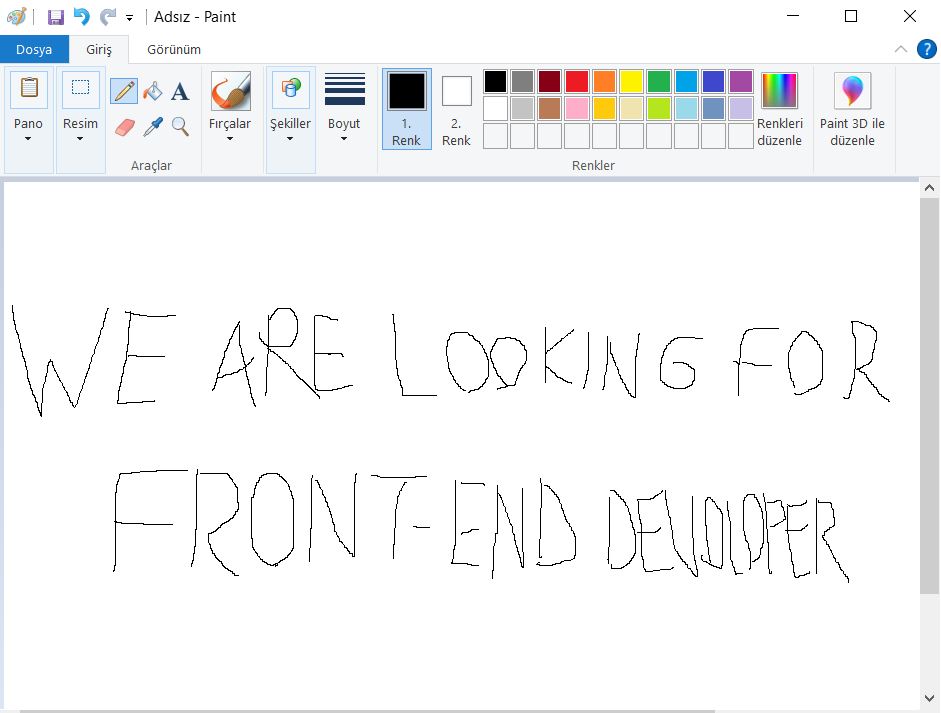 Adsız - Paint
Dosya Giriş Görünüm
Pano Resim Fırçalar Şekiller Boyut 1. Renk 2. Renk Renkleri düzenle Paint 3D ile düzenle
Araçlar Renkler
WE ARE LOOKING FOR
FRONT-END DEVOLOPER